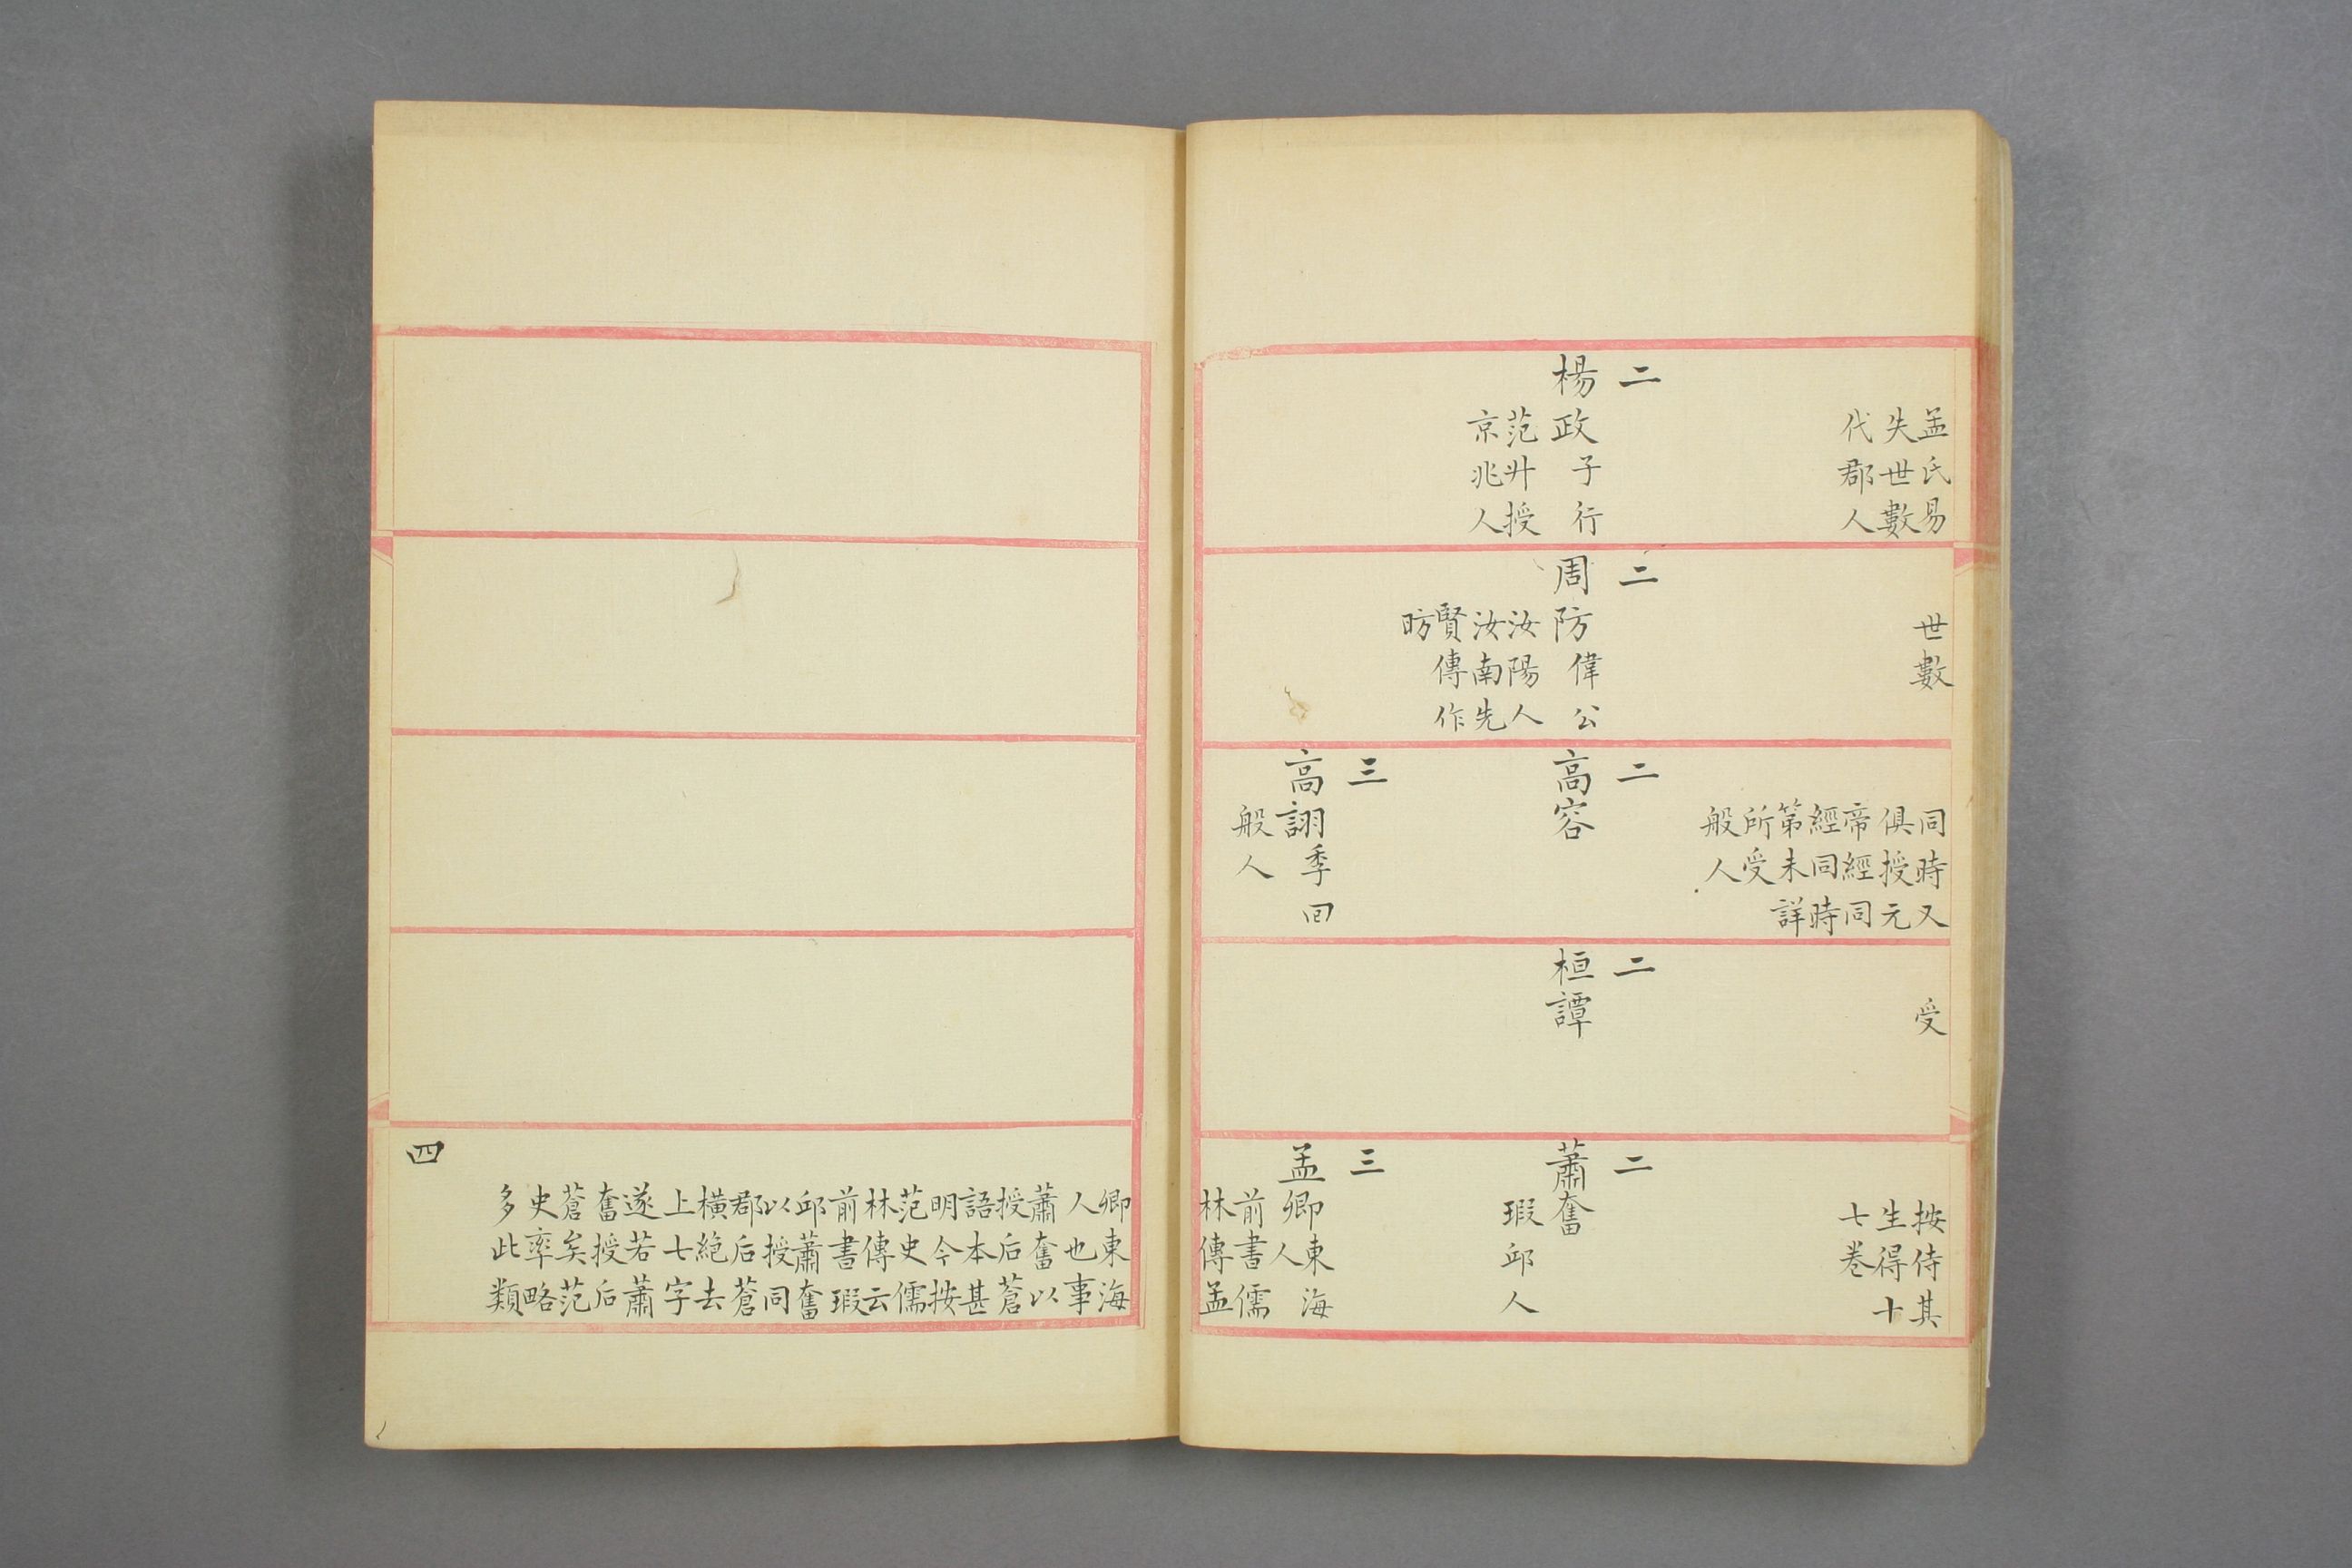 孟氏易
失世數
代郡人
二
楊政子行
范升授
京兆人
世數
二
周防偉公
汝陽人
汝南先
賢傳作
昉
同時又
俱授元
帝經同
經同時
第未詳
所受
般人
二
高容
三
高詡季回
般人
受
二
桓譚
按侍其
生得十
七卷
二
蕭奮
瑕邱人
三
孟卿東海
人
前書儒
林傳孟
卿東海
人也事
蕭奮以
授后蒼
語本甚
明今按
范史儒
林傳云
前書瑕
邱蕭奮
以授同
郡后蒼
橫絕去
上七字
遂若蕭
奮授后
蒼矣范
史率略
多此類
四